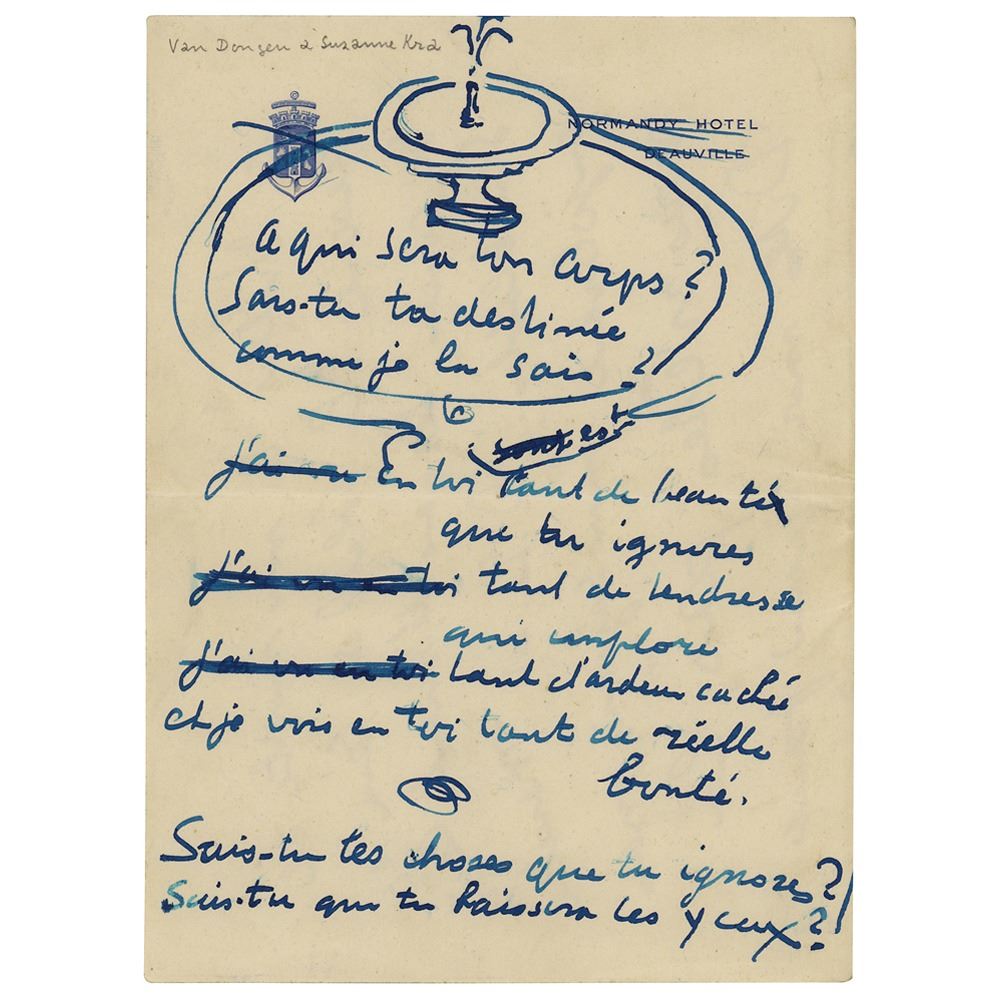 Van Dongen à Suzanne Kra
NORMANDY HOTEL
DEAUVILLE
a qui sera ton corps ?
Sais-tu ta destinée
comme je la sais ?
sont est
j'ai vu En toi tant de beauté
que tu ignores
j'ai vu en toi tant de tendresse
qui implore
j'ai vu en toi tant d'ardeur cachée
et je vois en toi tant de réelle
bonté.
Sais-tu tes choses que tu ignores ?
Sais-tu que tu baissera les yeux ?